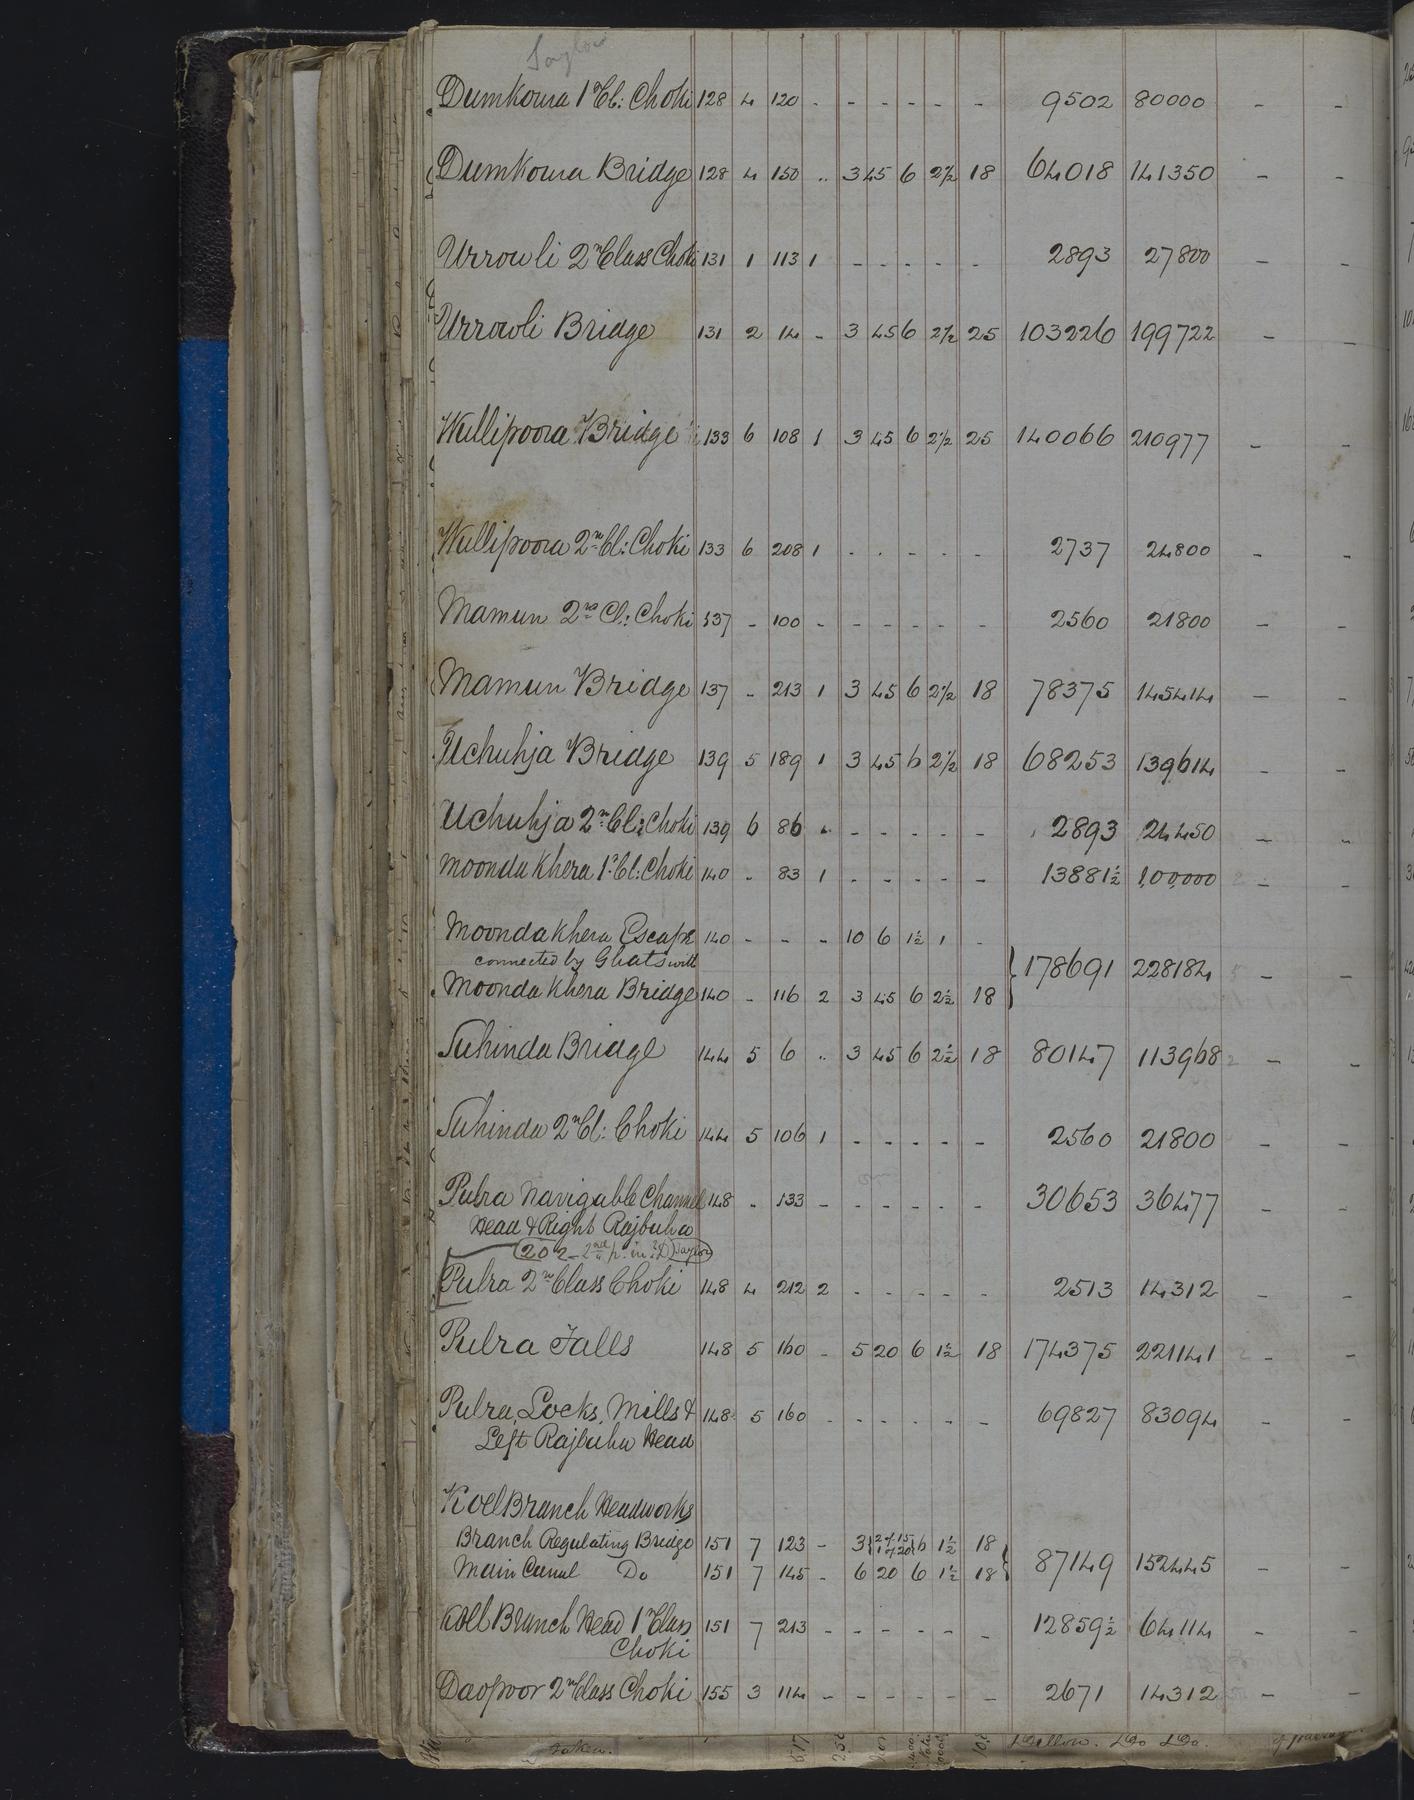 Taylor
Dumkowra 1st Cl: Choki 128 4 120 - - - - - - 9502 80000 - -
Dumkowra Bridge 128 4 150 .. 3 45 6 2½ 18 64018 141350 - -
Urrowli 2nd Class Choki 131 1 113 1 - - - - - 2893 27800 - -
Urrowli Bridge 131 2 14 - 3 45 6 2½ 25 103226 199722 - -
Wullipoora Bridge 133 6 108 1 3 45 6 2½ 25 140066 210977 - -
Wullipoora 2nd Cl: Choki 133 6 208 1 - - - - - 2737 24800 - -
Mamun 2nd Cl: Choki 137 - 100 - - - - - - 2560 21800 - -
Mamun Bridge 137 - 213 1 3 45 6 2½ 18 78375 145414 - -
Uchuhja Bridge 139 5 189 1 3 45 6 2½ 18 68253 139614 - -
Uchuhja 2nd Cl: Choki 139 6 86 - - - - - - 2893 24450 - -
Moonda Khera 1st Cl: Choki 140 - 83 1 - - - - - 13881½ 1,00,000 - -
Moonda Khera Escape 140 - - - 10 6 1½ 1 -
connected by Ghats with } 178691 228184 - -
Moonda Khera Bridge 140 - 116 2 3 45 6 2½ 18
Suhinda Bridge 144 5 6 .. 3 45 6 2½ 18 80147 113968 - -
Suhinda 2nd Cl: Choki 144 5 106 1 - - - - - 2560 21800 - -
Pulra Navigable Channel 148 - 133 - - - - - - 30653 36477 - -
Head & Right Rajbuha
202 - 2nd p. in Taylor
Pulra 2nd Class Choki 148 4 212 2 - - - - - 2513 14312 - -
Pulra Falls 148 5 160 - 5 20 6 1½ 18 174375 221141 - -
Pulra, Locks, Mills & 148 5 160 - - - - - - 69827 83094 - -
Left Rajbuha Head
Koel Branch Headworks
Branch Regulating Bridge 151 7 123 - 3 { 2 of 15 1 of 20 } 6 1½ 18
Main Canal Do 151 7 145 - 6 20 6 1½ 18 } 87149 152445 - -
Koel Branch Head 1st Class 151 7 213 - - - - - - 12859½ 64114 - -
Choki
Daopoor 2nd Class Choki 155 3 114 - - - - - - 2671 14312 - -